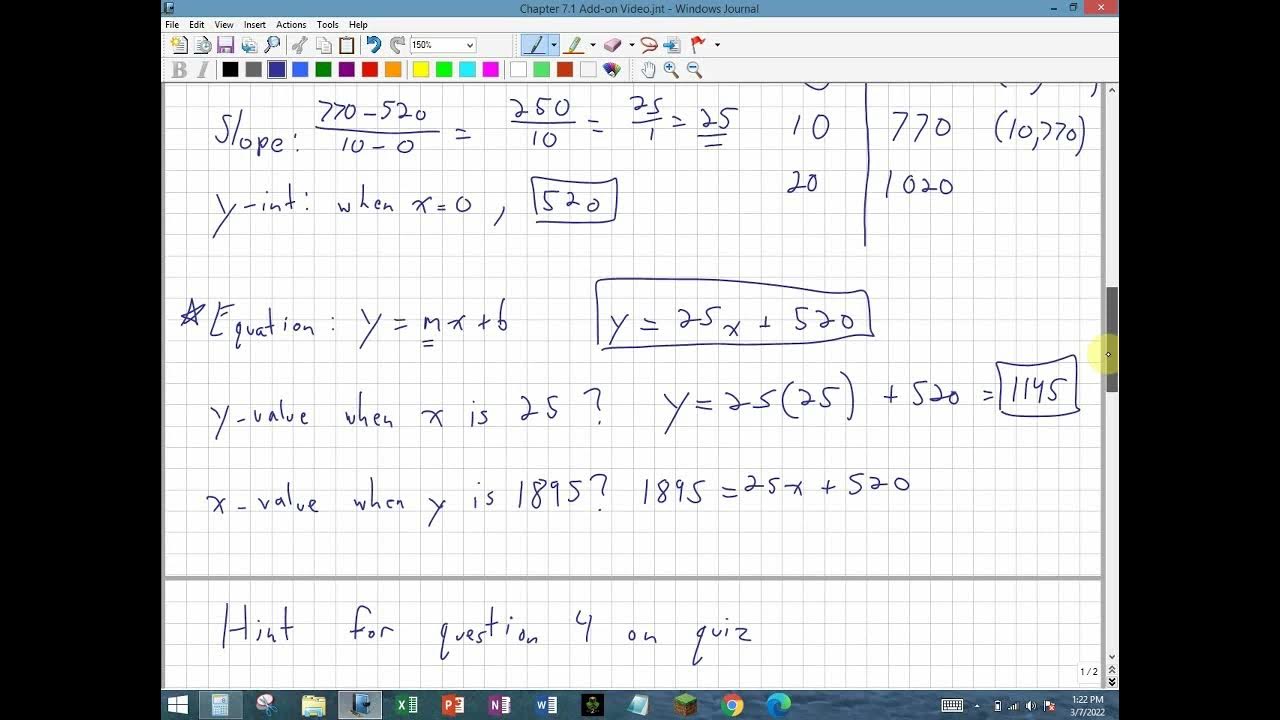 Chapter 7.1 Add-on Video.jnt - Windows Journal
File Edit View Insert Actions Tools Help
150%
B I
Slope: 770-520 / 10-0 = 250 / 10 = 25 / 1 = 25
10 770 (10,770)
20 1020
y-int: when x=0, 520
Equation: y = mx+b y = 25x + 520
y-value when x is 25? y = 25(25) + 520 = 1145
x-value when y is 1895? 1895 = 25x + 520
Hint for question 4 on quiz
1 / 2
1:22 PM
3/7/2022